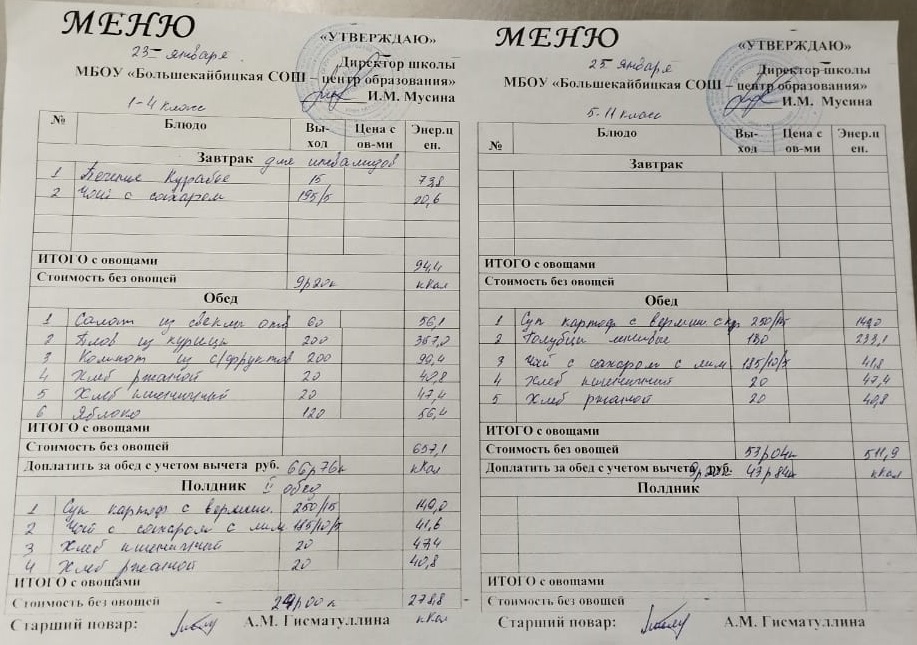 МЕНЮ
23 января
«УТВЕРЖДАЮ»
Директор школы
МБОУ «Большекайбицкая СОШ – центр образования»
И.М. Мусина
1-4 класс
№ Блюдо Вы-ход Цена с ов-ми Энер.ц ен.
Завтрак для инвалидов
1 Печенье Курабье 15 73,8
2 Чай с сахаром 195/5 20,6
ИТОГО с овощами 94,4
Стоимость без овощей 9р20к кКал
Обед
1 Салат из свеклы отв 60 56,1
2 Плов из курицы 200
3 Компот из с/фруктов 200 90,4
4 Хлеб ржаной 20 40,8
5 Хлеб пшеничный 20 47,4
6 Яблоко 120 56,4
ИТОГО с овощами
Стоимость без овощей 657,1
Доплатить за обед с учетом вычета руб. 66р76к кКал
Полдник II обед
1 Суп картоф с вермиш. 250/15 149,0
2 Чай с сахаром с лим 185/10/5 41,6
3 Хлеб пшеничный 20 47,4
4 Хлеб ржаной 20 40,8
ИТОГО с овощами
Стоимость без овощей 278,8
Старший повар: А.М. Гисматуллина кКал
МЕНЮ
23 января
«УТВЕРЖДАЮ»
Директор школы
МБОУ «Большекайбицкая СОШ – центр образования»
И.М. Мусина
5-11 класс
№ Блюдо Вы-ход Цена с ов-ми Энер.ц ен.
Завтрак
ИТОГО с овощами
Стоимость без овощей
Обед
1 Суп картоф с вермиш с кур 250/15 149,0
2 Голубцы ленивые 233,1
3 Чай с сахаром с лим 185/10/5 41,8
4 Хлеб пшеничный 20 47,4
5 Хлеб ржаной 20 40,8
ИТОГО с овощами
Стоимость без овощей 53р04к 511,9
Доплатить за обед с учетом вычета руб. 43р84к кКал
Полдник
ИТОГО с овощами
Стоимость без овощей
Старший повар: А.М. Гисматуллина